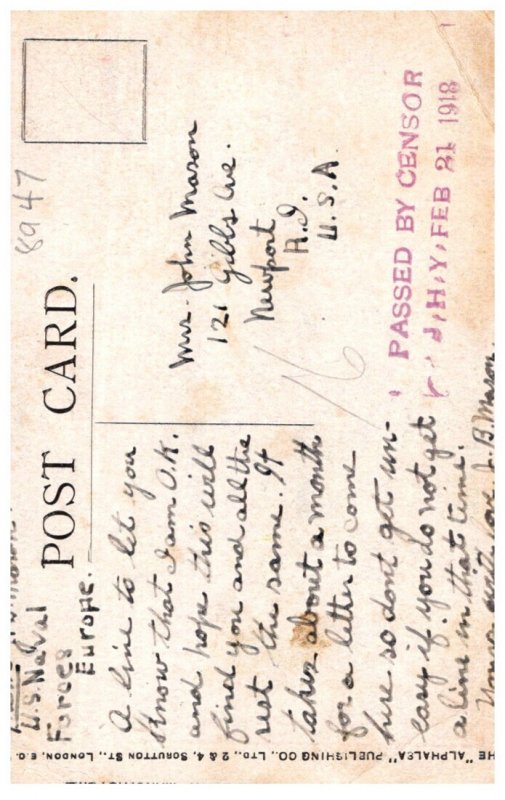 8947
POST CARD.
U.S. Naval
Forces
Europe.
A line to let you
know that I am O.K.
and hope this will
find you and all the
rest the same. It
takes about a month
for a letter to come
here so dont get un-
easy if you do not get
a line in that time.
J. B. Mason.
Mrs. John Mason
121 Gibbs Ave.
Newport
R.I.
U.S.A.
16
PASSED BY CENSOR
FEB 21 1918
HE "ALPHALSA" PUBLISHING CO., LTD., 2 & 4, SCRUTTON ST., LONDON, E.C.